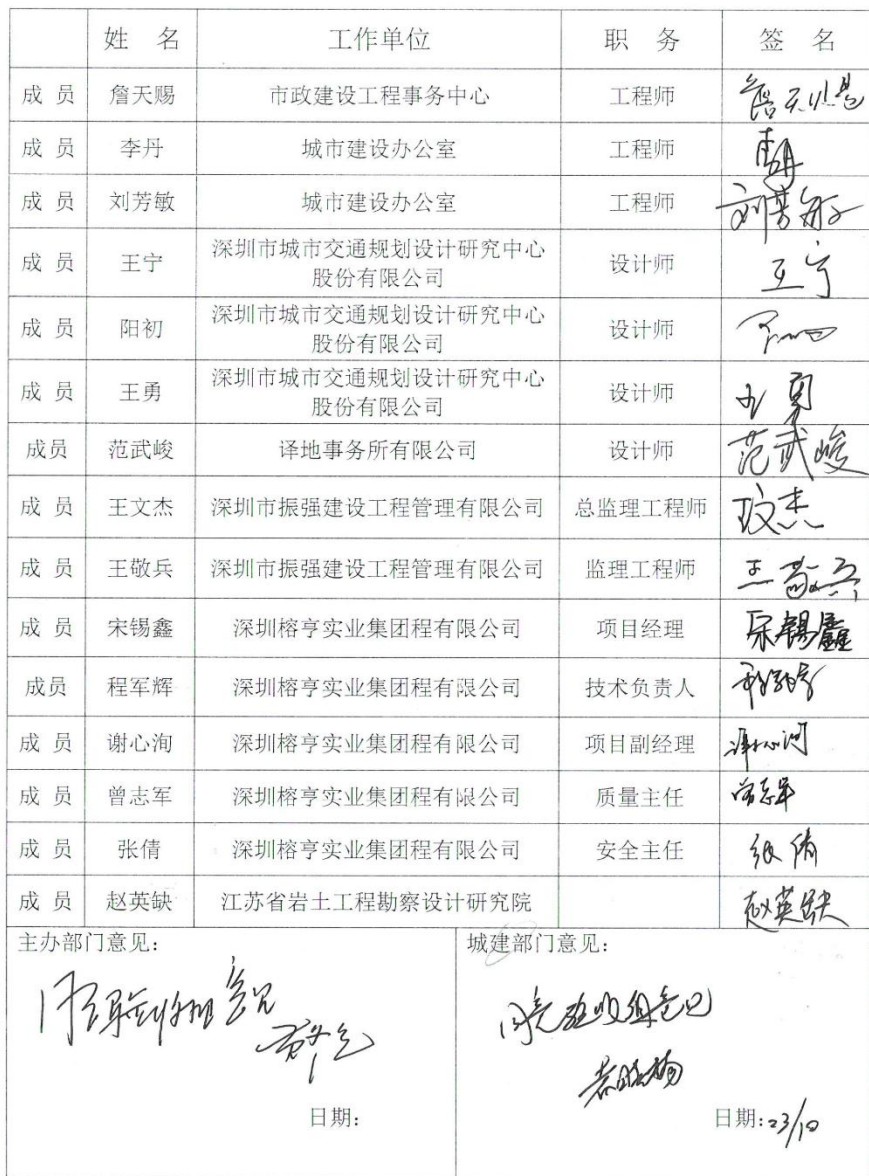 姓 名 工作单位 职 务 签 名
成 员 詹天赐 市政建设工程事务中心 工程师 詹天赐
成 员 李丹 城市建设办公室 工程师 李丹
成 员 刘芳敏 城市建设办公室 工程师 刘芳敏
成 员 王宁 深圳市城市交通规划设计研究中心
股份有限公司 设计师 王宁
成 员 阳初 深圳市城市交通规划设计研究中心
股份有限公司 设计师
成 员 王勇 深圳市城市交通规划设计研究中心
股份有限公司 设计师 王勇
成员 范武峻 译地事务所有限公司 设计师 范武峻
成 员 王文杰 深圳市振强建设工程管理有限公司 总监理工程师 王文杰
成 员 王敬兵 深圳市振强建设工程管理有限公司 监理工程师 王敬兵
成 员 宋锡鑫 深圳榕亨实业集团程有限公司 项目经理 宋锡鑫
成员 程军辉 深圳榕亨实业集团程有限公司 技术负责人 程军辉
成 员 谢心洵 深圳榕亨实业集团程有限公司 项目副经理 谢心洵
成 员 曾志军 深圳榕亨实业集团程有限公司 质量主任 曾志军
成 员 张倩 深圳榕亨实业集团程有限公司 安全主任 张倩
成 员 赵英缺 江苏省岩土工程勘察设计研究院 赵英缺
主办部门意见：
同意验收组意见
日期：
城建部门意见：
同意验收组意见
日期：23/10